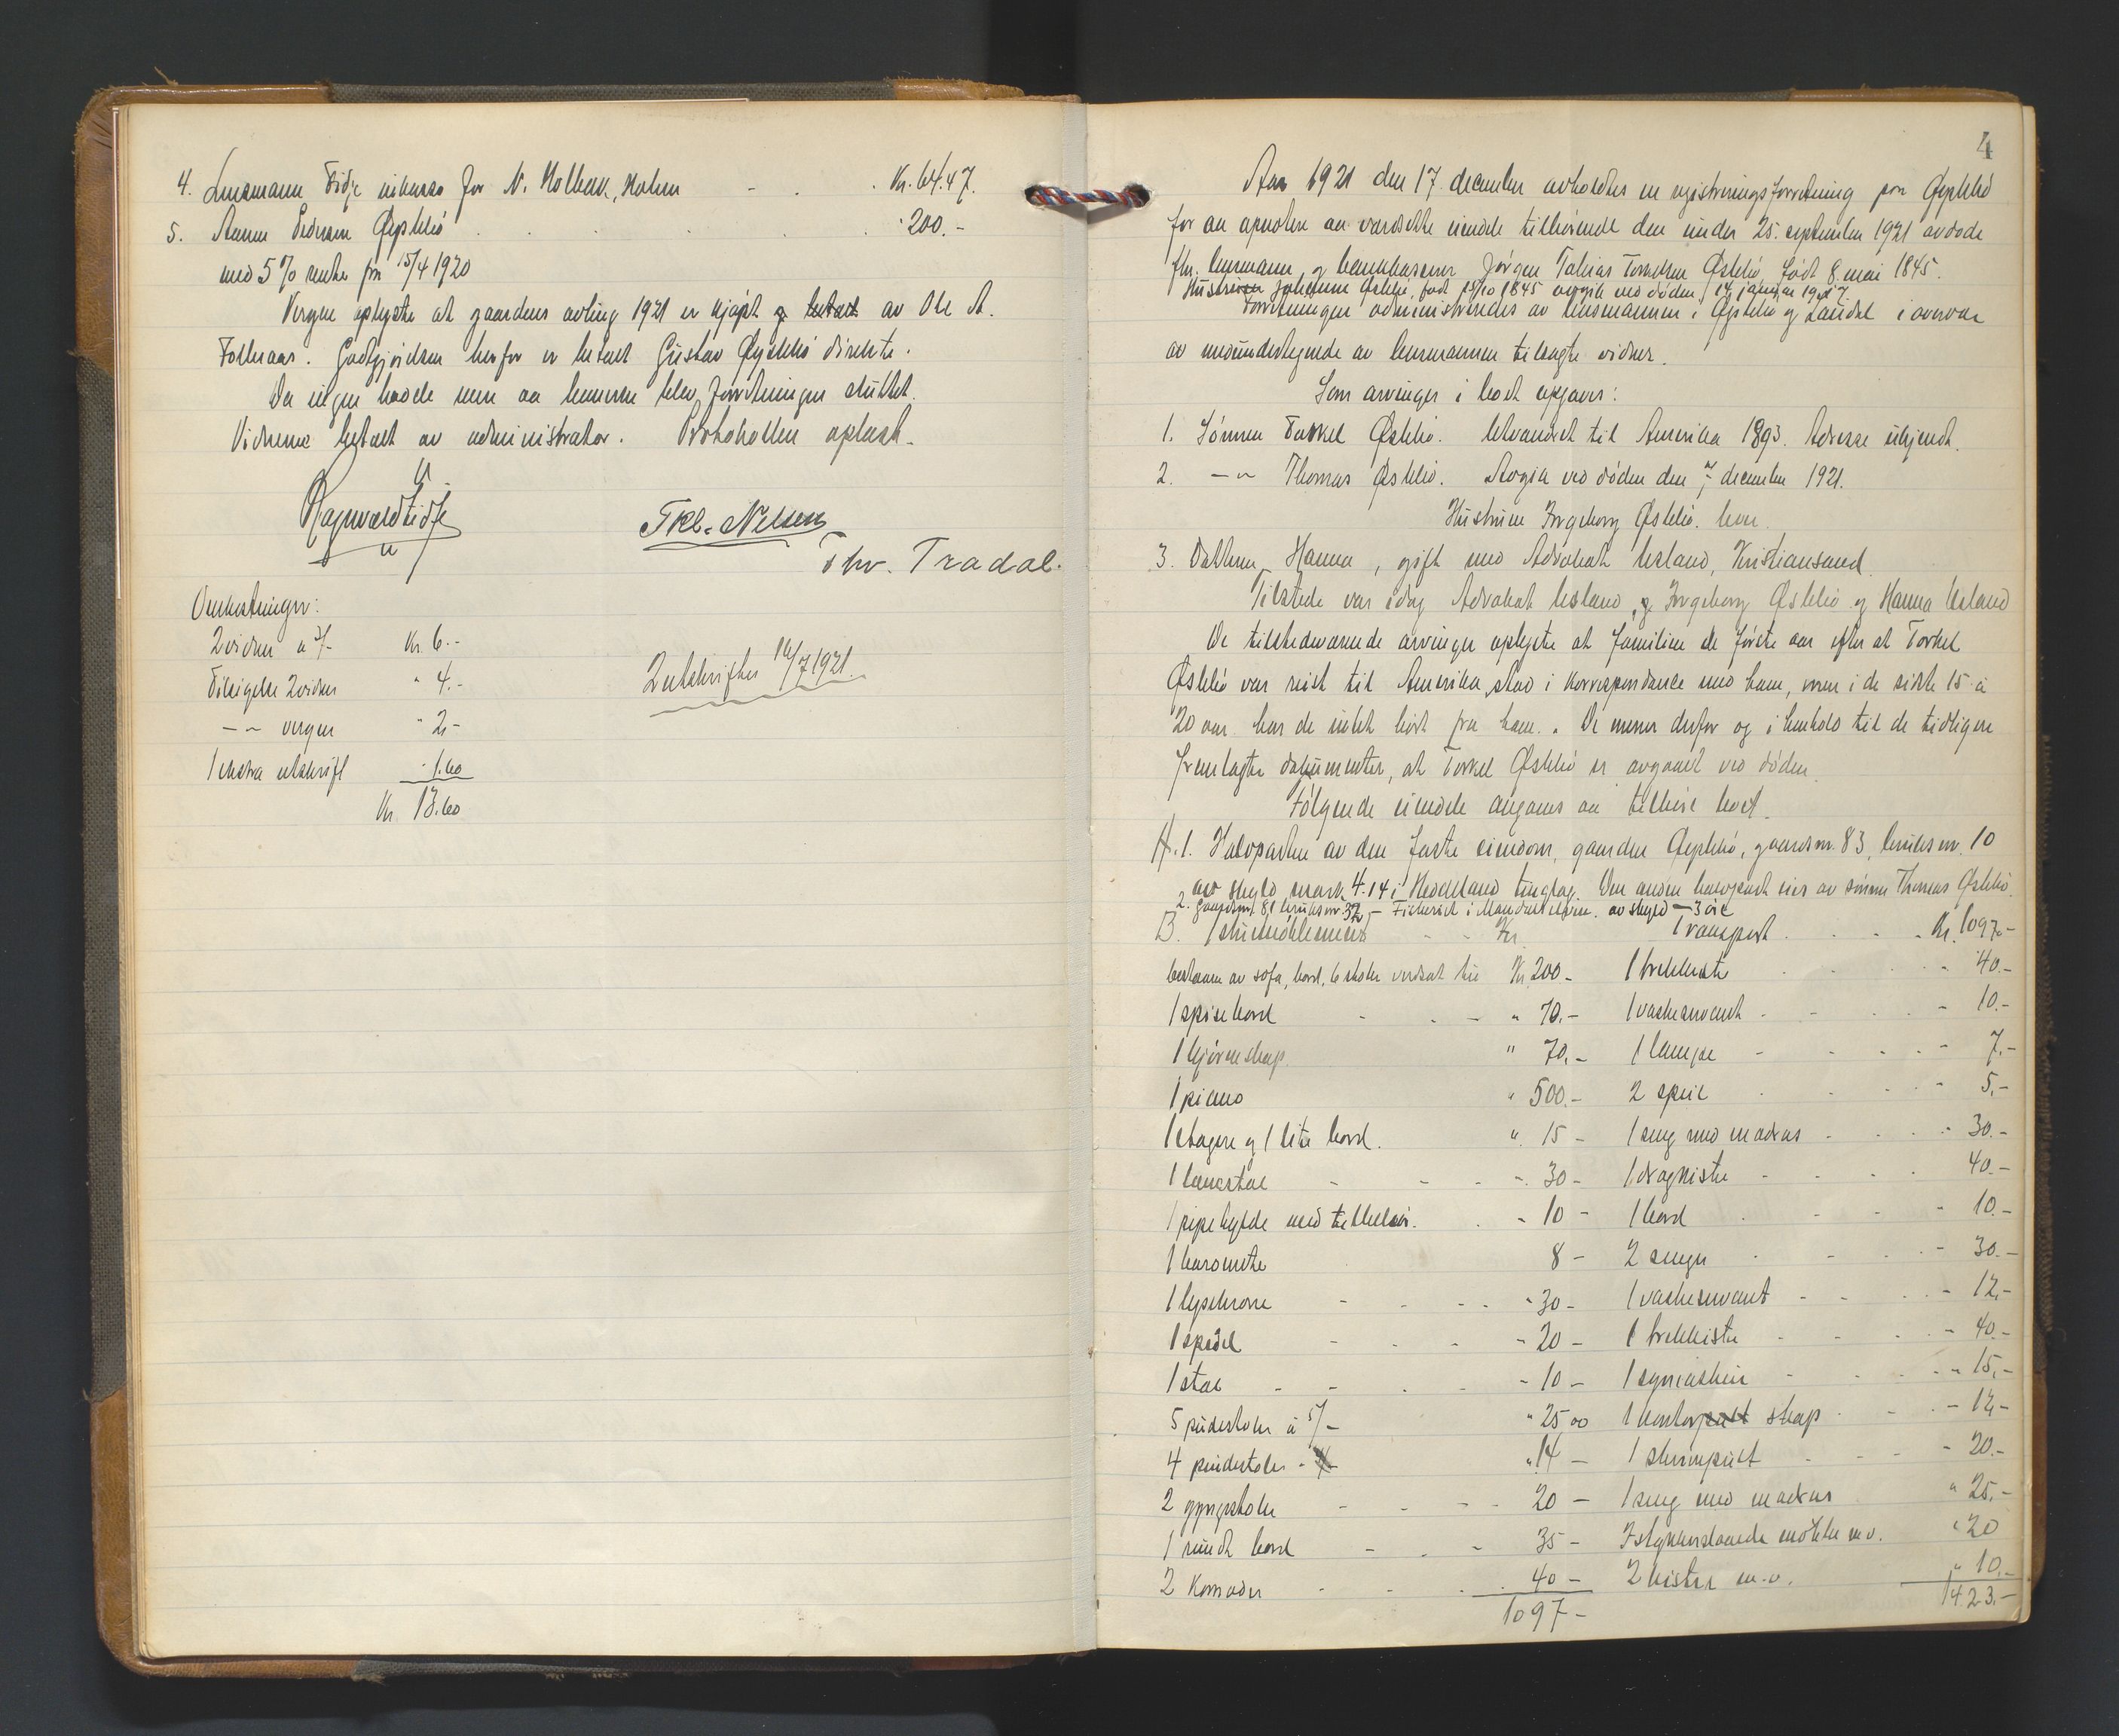 4. Lensmann Tidje inkasso for N. Holbæk, Holum - . . Kr. 64.47.
5. Aanen Pedersen Øyslebø . . . . . . " 200.-
med 5% rente fra 15/4 1920
Vergen oplyste at gaardens avling 1921 er kjøpt og betalt av Ole A.
Folleraas. Godtgjørelsen herfor er betalt Gustav Øyslebø direkte.
Da ingen hadde mere aa bemerke blev forretningen sluttet.
Vidnene betalt av administrator. Protokollen oplæst.
Ragnvald Tidje
Tkl. Nelsen
Thv. Tradal.
Omkostninger:
2 vidner a 3/- Kr. 6.-
Tilsigelse 2 vidner " 4.-
-"- vergen " 2,-
1 ekstra utskrift " 1.60
Kr. 13.60
2 utskrifter 16/7 1921.
4
Aar 1921 den 17. december avholdtes en registreringsforretning paa Øyslebø
for aa opnotere aa værdsette eiendele tilhørende den under 25. september 1921 avdøde
fhv. lensmann og bankkasserer Jørgen Tobias Torkelsen Øslebø, født 8. mai 1845.
Hustruen Johanne Øslebø, født 15/10 1845 avgik ved døden 14 januar 1917.
Forretningen administreredes av lensmannen i Øyslebø og Laudal i overvær
av medundertegnede av lensmannen tilsagte vidner.
Som arvinger i boet opgaves:
1. Sønnen Torkel Øslebø. Utvandret til Amerika 1893. Adresse ukjendt.
2. -"- Thomas Øslebø. Avgik ved døden den 7/ december 1921.
Hustruen Ingeborg Øslebø. lever.
3. Datteren Hanna, gift med Advokat Usland, Kristiansand.
Tilstede var idag Advokat Usland, og Ingeborg Øslebø og Hanna Usland
De tilstedeværende arvinger oplyste at familien de første aar efter at Torkel
Øslebø var reist til Amerika, stod i korrespondance med ham, men i de siste 15 a
20 aar har de intet hørt fra ham. De mener derfor og i henhold til de tidligere
fremlagte dokumenter, at Torkel Øslebø er avgaaet ved døden.
Følgende eiendele angaves aa tilhøre boet.
A. 1. Halvparten av den faste eiendom, gaarden Øyslebø, gaardsnr. 83, bruksnr. 10
av skyld mark 4.14 i Heddeland tinglag. Den anden halvpart eies av sønnen Thomas Øslebø.
2. Gaardsnr. 81 bruksnr. 32 - Fiskeriet i Mandalselven. av skyld - 3 øre
B. 1 stuemøblement - - Kr. Transport . . . Kr. 1097.-
bestaaende av sofa, bord, 6 stoler verdsat til Kr. 200- 1 trekkiste . . . " 40.-
1 spisebord - . - " 70.- 1 vaskeservant - . - 10.-
1 hjørneskap. " 70.- 1 lampe - . . - 7.-
1 piano " 500.- 2 speil . . - 5.-
1 etagere og 1 lite bord. " 15 - 1 seng med madras . . . 30.-
1 lænestol - - - - 30 - 1 dragkiste - . . 40.-
1 pipehylde med tilbehør. . - 10 - 1 bord . - - 10.-
1 barometer 8 - 2 senger . - . - 30.-
1 lysekrone - - - - " 30 - 1 vaskeservant - - . - 12.-
1 speil - - - - 20 - 1 trekkiste - . - 40.-
1 stol - - . - - 10 - 1 symaskin - . - " 15.-
5 pindestoler a 5/- " 25 00 1 kontorpult skap . - . - 12,-
4 pindestoler - " 14 - 1 skrivepult . - - 20.-
2 gyngestoler - - - - 20 - 1 seng med madras " 25.-
1 rundt bord - . - 35 - Istykkerslaaede møbler m.v. " 20
2 Komoder . - . . 40 - 2 kister m.v. " 10.-
1097 - 1423.-